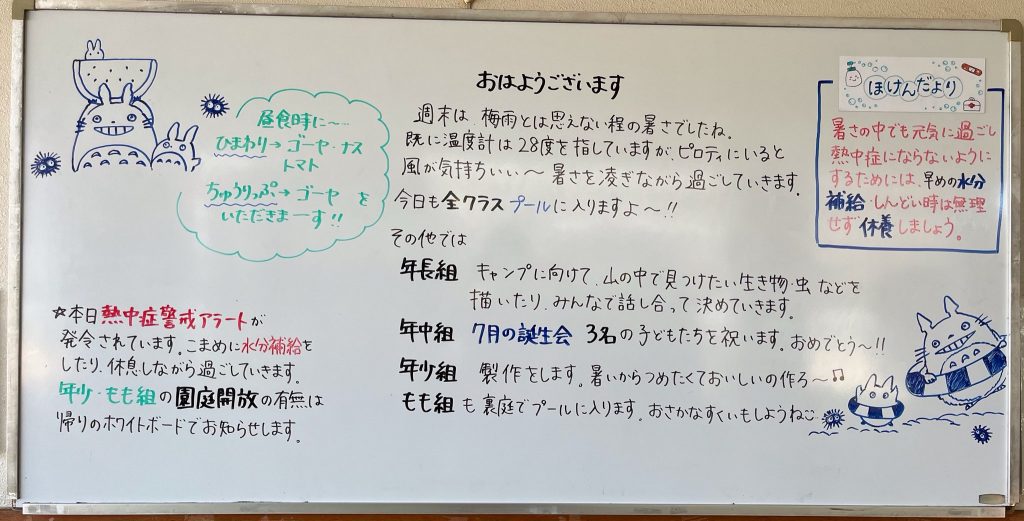 おはようございます
週末は、梅雨とは思えない程の暑さでしたね。
既に温度計は28度を指していますが、ピロティにいると
風が気持ちいい～暑さを凌ぎながら過ごしていきます。
今日も全クラスプールに入りますよ～!!
その他では
年長組 キャンプに向けて、山の中で見つけたい生き物・虫などを
描いたり、みんなで話し合って決めていきます。
年中組 7月の誕生会 3名の子どもたちを祝います。おめでとう～!!
年少組 製作をします。暑いからつめたくておいしいの作ろ～♫
もも組も裏庭でプールに入ります。おさかなすくいもしようね
昼食時に～…
ひまわり→ゴーヤ・ナス
トマト
ちゅうりっぷ→ゴーヤ を
いただきまーす!!
☆本日熱中症警戒アラートが
発令されています。こまめに水分補給を
したり、休息しながら過ごしていきます。
年少・もも組の園庭開放の有無は
帰りのホワイトボードでお知らせします。
ほけんだより
暑さの中でも元気に過ごし
熱中症にならないように
するためには、早めの水分
補給・しんどい時は無理
せず休養しましょう。